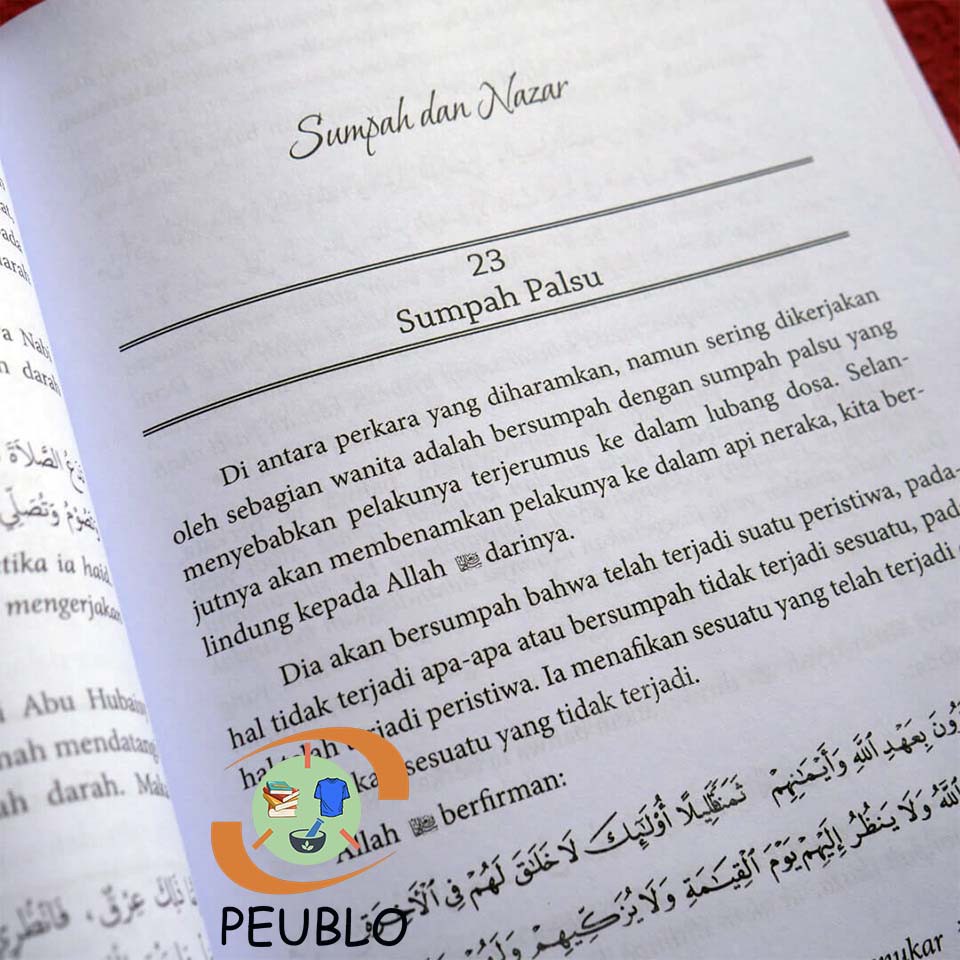 Sumpah dan Nazar
23
Sumpah Palsu
Di antara perkara yang diharamkan, namun sering dikerjakan
oleh sebagian wanita adalah bersumpah dengan sumpah palsu yang
menyebabkan pelakunya terjerumus ke dalam lubang dosa. Selan-
jutnya akan membenamkan pelakunya ke dalam api neraka, kita ber-
lindung kepada Allah ﷻ darinya.
Dia akan bersumpah bahwa telah terjadi suatu peristiwa, pada-
hal tidak terjadi apa-apa atau bersumpah tidak terjadi sesuatu, pada
hal telah terjadi peristiwa. Ia menafikan sesuatu yang telah terjadi
sesuatu yang tidak terjadi.
Allah ﷻ berfirman:
بِعَهْدِ ٱللَّهِ وَأَيْمَـٰنِهِمْ ثَمَنًا قَلِيلًا أُو۟لَـٰٓئِكَ لَا خَلَـٰقَ لَهُمْ فِى ٱلْـَٔاخِرَةِ
ٱللَّهُ وَلَا يَنظُرُ إِلَيْهِمْ يَوْمَ ٱلْقِيَـٰمَةِ وَلَا يُزَكِّيهِمْ وَلَهُمْ
nukar
a Nabi
darah
الصَّلَاةَ
وَتَصُومُ وَتُصَلِّي
etika ia haid
mengerjakan
Abu Hubaisy
mah mendatang
ah darah. Maka
عِرْقٌ، فَانْظُرِي
PEUBLO